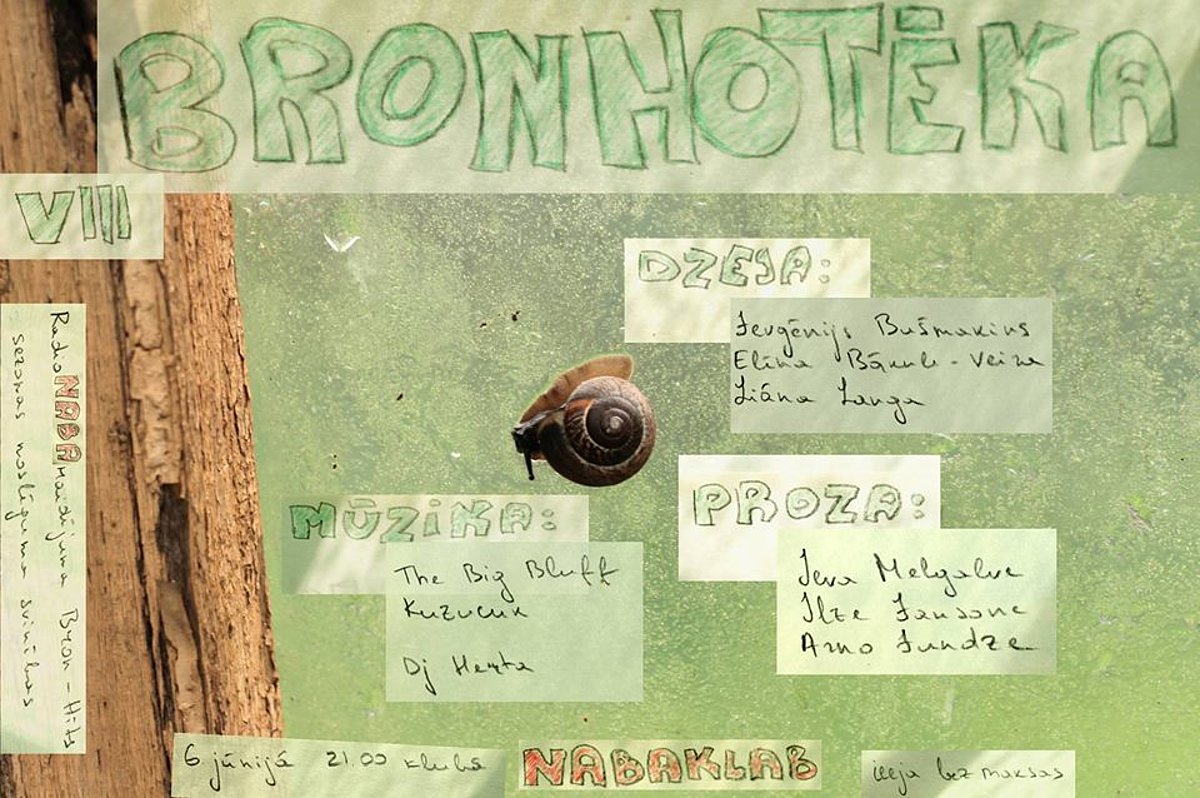 BRONHOTĒKA
VIII
Radio NABA raidījuma Bron-Hīts
sezonas noslēguma svinības
DZEJA:
Jevgēnijs Bušmakins
Elīna Bākule-Veira
Liāna Langa
PROZA:
Ieva Melgalve
Ilze Jansone
Arno Jundze
MŪZIKA:
The Big Bluff
Kuzucuk
Dj Herta
6 jūnijā 21.00 klubā
NABAKLAB
ieeja bez maksas